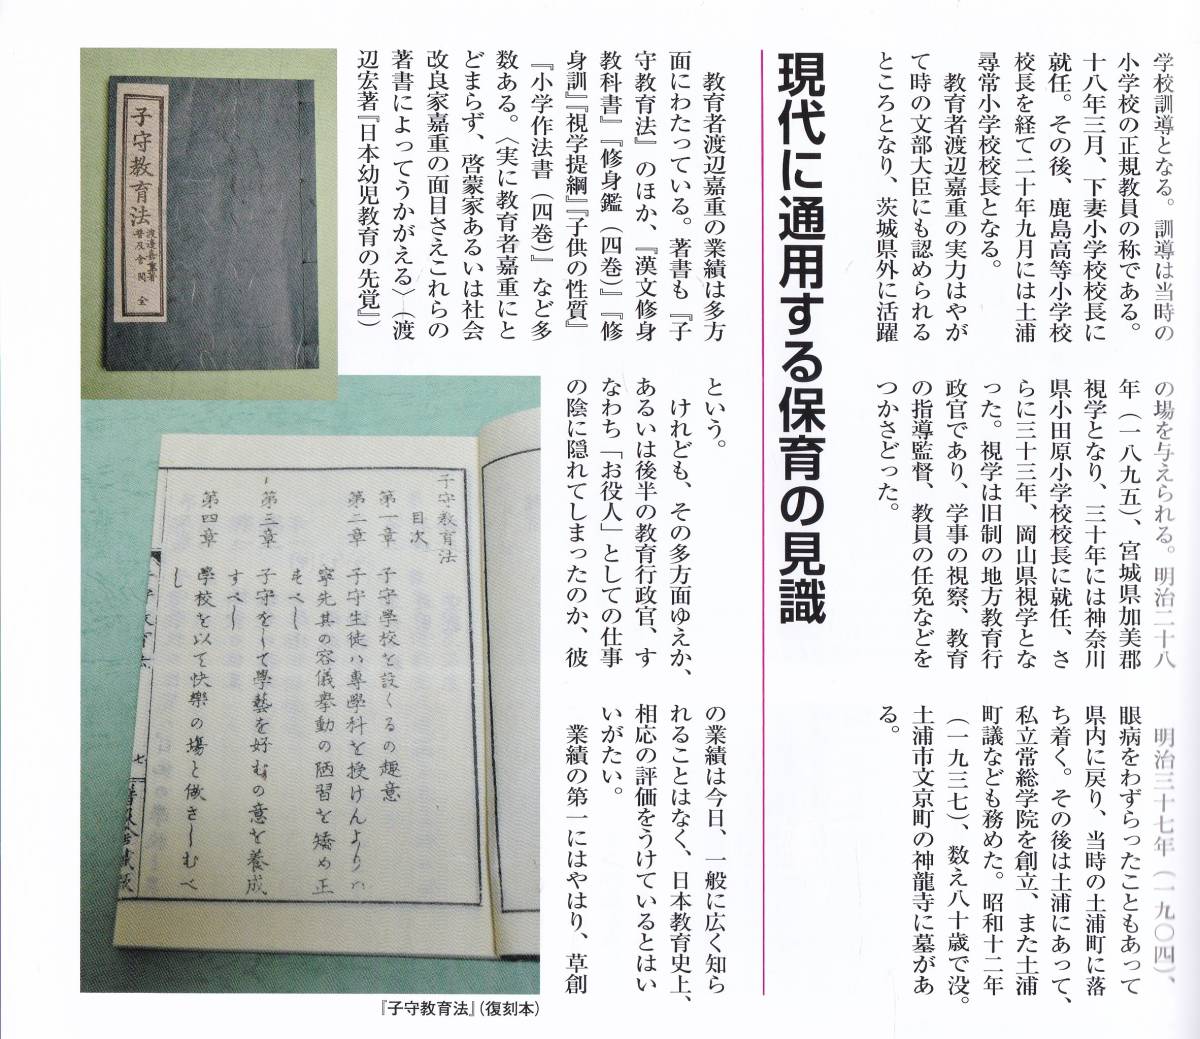 学校訓導となる。訓導は当時の
小学校の正規教員の称である。
十八年三月、下妻小学校校長に
就任。その後、鹿島高等小学校
校長を経て二十年九月には土浦
尋常小学校校長となる。
教育者渡辺嘉重の実力はやが
て時の文部大臣にも認められる
ところとなり、茨城県外に活躍
の場を与えられる。明治二十八
年（一八九五）、宮城県加美郡
視学となり、三十年には神奈川
県小田原小学校校長に就任、さ
らに三十三年、岡山県視学とな
った。視学は旧制の地方教育行
政官であり、学事の視察、教育
の指導監督、教員の任免などを
つかさどった。
明治三十七年（一九〇四）、
眼病をわずらったこともあって
県内に戻り、当時の土浦町に落
ち着く。その後は土浦にあって、
私立常総学院を創立、また土浦
町議なども務めた。昭和十二年
（一九三七）、数え八十歳で没。
土浦市文京町の神龍寺に墓があ
る。
現代に通用する保育の見識
教育者渡辺嘉重の業績は多方
面にわたっている。著書も『子
守教育法』のほか、『漢文修身
教科書』『修身鑑（四巻）』『修
身訓』『視学提綱』『子供の性質』
『小学作法書（四巻）』など多
数ある。〈実に教育者嘉重にと
どまらず、啓蒙家あるいは社会
改良家嘉重の面目さえこれらの
著書によってうかがえる〉（渡
辺宏著『日本幼児教育の先覚』）
という。
けれども、その多方面ゆえか、
あるいは後半の教育行政官、す
なわち「お役人」としての仕事
の陰に隠れてしまったのか、彼
の業績は今日、一般に広く知ら
れることはなく、日本教育史上、
相応の評価をうけているとはい
いがたい。
業績の第一にはやはり、草創
子守教育法
渡邊嘉重著
普及舎閲
全
子守教育法
目次
第一章 子守學校を設くるの趣意
第二章 子守生徒ハ專學科を授けんよりハ
寧先其の容儀擧動の陋習を矯め正
すべし
第三章 子守をして學藝を好むの意を養成
すべし
第四章 學校を以て快樂の塲と做さしむべ
し
七
『子守教育法』（復刻本）